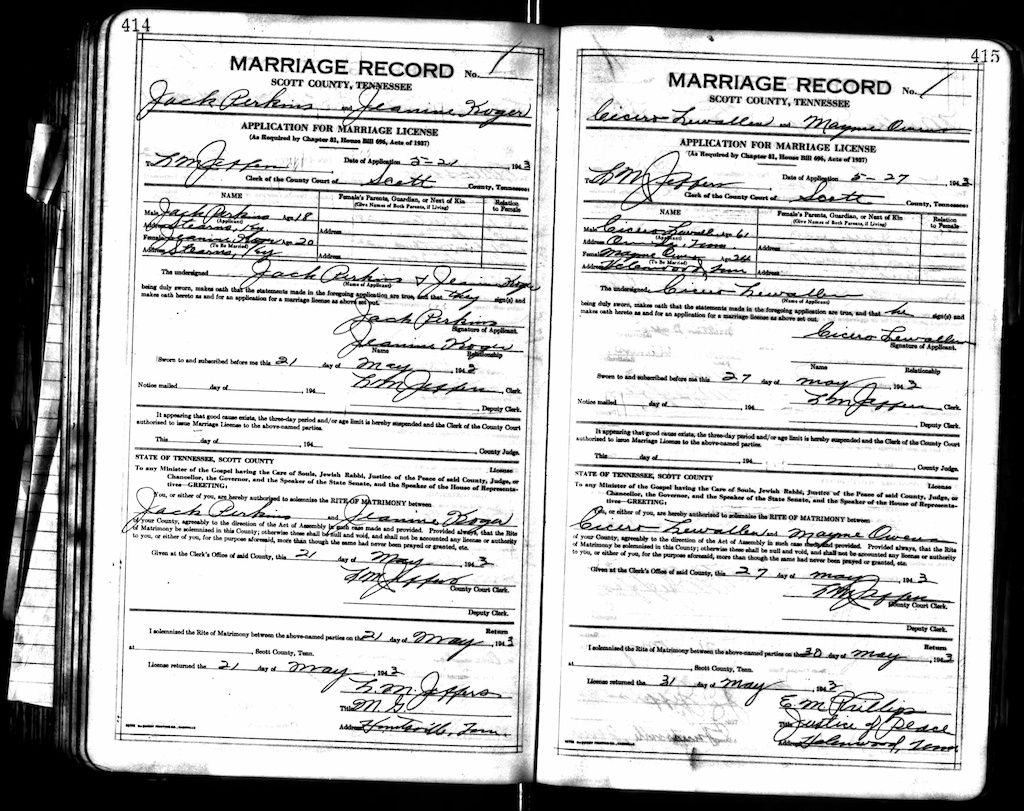 414
MARRIAGE RECORD No. 1
SCOTT COUNTY, TENNESSEE
Jack Perkins and Jeanine Koger
APPLICATION FOR MARRIAGE LICENSE
(As Required by Chapter 81, House Bill 696, Acts of 1937)
To L M Jeffers Date of Application 5-21 1943
Clerk of the County Court of Scott County, Tennessee:
NAME Female's Parents, Guardian, or Next of Kin Relation
(Give Names of Both Parents, if Living) to Female
Male Jack Perkins Age 18
(Applicant)
Address Stearns, Ky Address
Female Jeanine Koger Age 20
(To Be Married)
Address Stearns, Ky Address
The undersigned Jack Perkins & Koger
(Name of Applicant)
being duly sworn, makes oath that the statements made in the foregoing application are true, and that they sign(s) and
makes oath hereto as and for an application for a marriage license as above set out.
Jack Perkins
Signature of Applicant.
Jeanine Koger
Name Relationship
Sworn to and subscribed before me this 21 day of May, 1943
L M Jeffers, Clerk.
Notice mailed day of , 194
, Deputy Clerk.
It appearing that good cause exists, the three-day period and/or age limit is hereby suspended and the Clerk of the County Court
authorized to issue Marriage License to the above-named parties.
This day of , 194
, County Judge.
STATE OF TENNESSEE, SCOTT COUNTY License
To any Minister of the Gospel having the Care of Souls, Jewish Rabbi, Justice of the Peace of said County, Judge, or
Chancellor, the Governor, and the Speaker of the State Senate, and the Speaker of the House of Representa-
tives—GREETING:
You, or either of you, are hereby authorized to solemnize the RITE OF MATRIMONY between
Jack Perkins and Jeanine Koger
of your County, agreeably to the direction of the Act of Assembly in such case made and provided. Provided always, that the Rite
of Matrimony be solemnized in this County; otherwise these shall be null and void, and shall not be accounted any license or authority
to you, or either of you, for the purpose aforesaid, more than though the same had never been prayed or granted, etc.
Given at the Clerk's Office of said County, this 21 day of May, 1943
L M Jeffers
County Court Clerk.
Deputy Clerk.
Return
I solemnized the Rite of Matrimony between the above-named parties on the 21 day of May, 1943
at , Scott County, Tenn.
License returned the 21 day of May 1943
L. M. Jeffers
Title M G
Address Huntsville, Tenn.
415
MARRIAGE RECORD No. 1
SCOTT COUNTY, TENNESSEE
Cicero Lewallen and Mayme Owens
APPLICATION FOR MARRIAGE LICENSE
(As Required by Chapter 81, House Bill 696, Acts of 1937)
To L M Jeffers Date of Application 5-27 1943
Clerk of the County Court of Scott County, Tennessee:
NAME Female's Parents, Guardian, or Next of Kin Relation
(Give Names of Both Parents, if Living) to Female
Male Cicero Lewallen Age 61
(Applicant)
Address Tenn Address
Female Mayme Owens Age 24
(To Be Married)
Address Helenwood, Tenn Address
The undersigned Cicero Lewallen
(Name of Applicant)
being duly sworn, makes oath that the statements made in the foregoing application are true, and that he sign(s) and
makes oath hereto as and for an application for a marriage license as above set out.
Cicero Lewallen
Signature of Applicant.
Name Relationship
Sworn to and subscribed before me this 27 day of May, 1943
L M Jeffers, Clerk.
Notice mailed day of , 194
, Deputy Clerk.
It appearing that good cause exists, the three-day period and/or age limit is hereby suspended and the Clerk of the County Court
authorized to issue Marriage License to the above-named parties.
This day of , 194
, County Judge.
STATE OF TENNESSEE, SCOTT COUNTY License
To any Minister of the Gospel having the Care of Souls, Jewish Rabbi, Justice of the Peace of said County, Judge, or
Chancellor, the Governor, and the Speaker of the State Senate, and the Speaker of the House of Representa-
tives—GREETING:
You, or either of you, are hereby authorized to solemnize the RITE OF MATRIMONY between
Cicero Lewallen and Mayme Owens
of your County, agreeably to the direction of the Act of Assembly in such case made and provided. Provided always, that the Rite
of Matrimony be solemnized in this County; otherwise these shall be null and void, and shall not be accounted any license or authority
to you, or either of you, for the purpose aforesaid, more than though the same had never been prayed or granted, etc.
Given at the Clerk's Office of said County, this 27 day of May 1943
L M Jeffers
County Court Clerk.
Deputy Clerk.
Return
I solemnized the Rite of Matrimony between the above-named parties on the 30 day of May, 1943
at , Scott County, Tenn.
License returned the 31 day of May 1943
E. M. Phillips
Title Justice of Peace
Address Helenwood, Tenn.